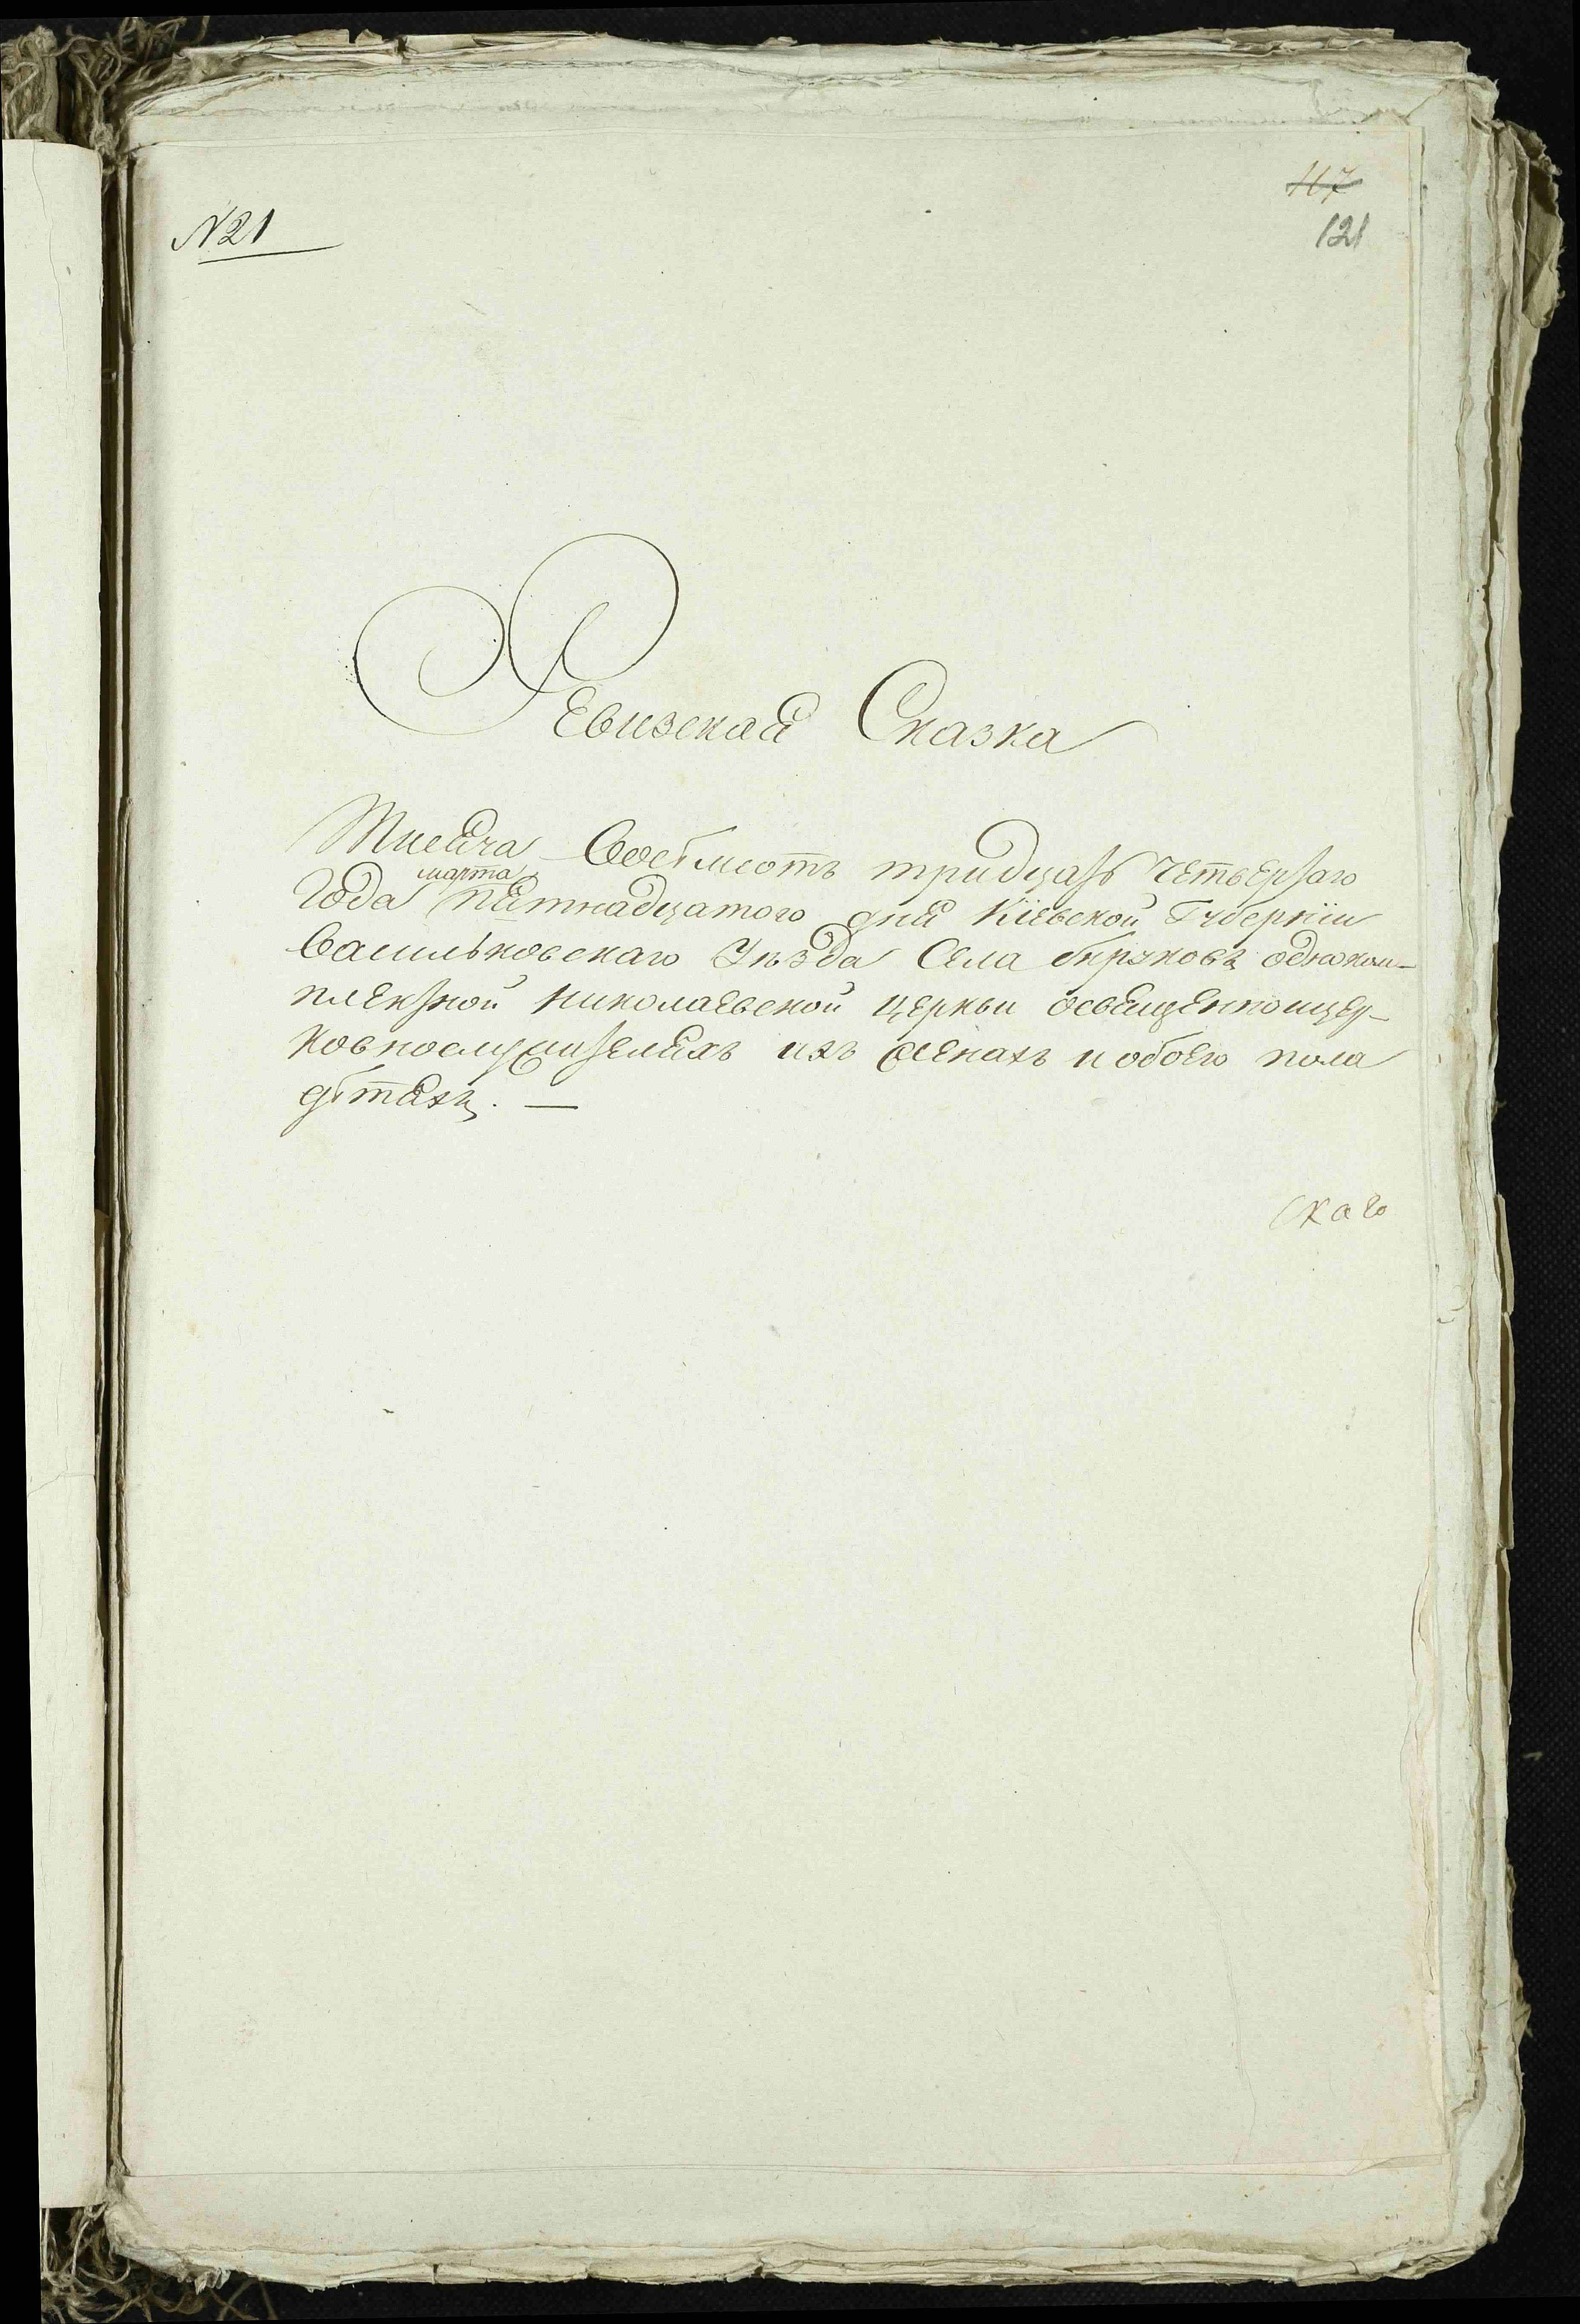 117
№ 21
121
Ревизская Сказка
Тисяча восемсотъ тридцать четвертаго
марта
года пятнадцатого дня Кіевской Губерніи
Васильковскаго Уѣзда Села Бирюковъ одноком-
плектной Николаевской церкви освященноицер-
ковнослужителяхъ ихъ женахъ и обоего пола
дѣтяхъ. —
скаго